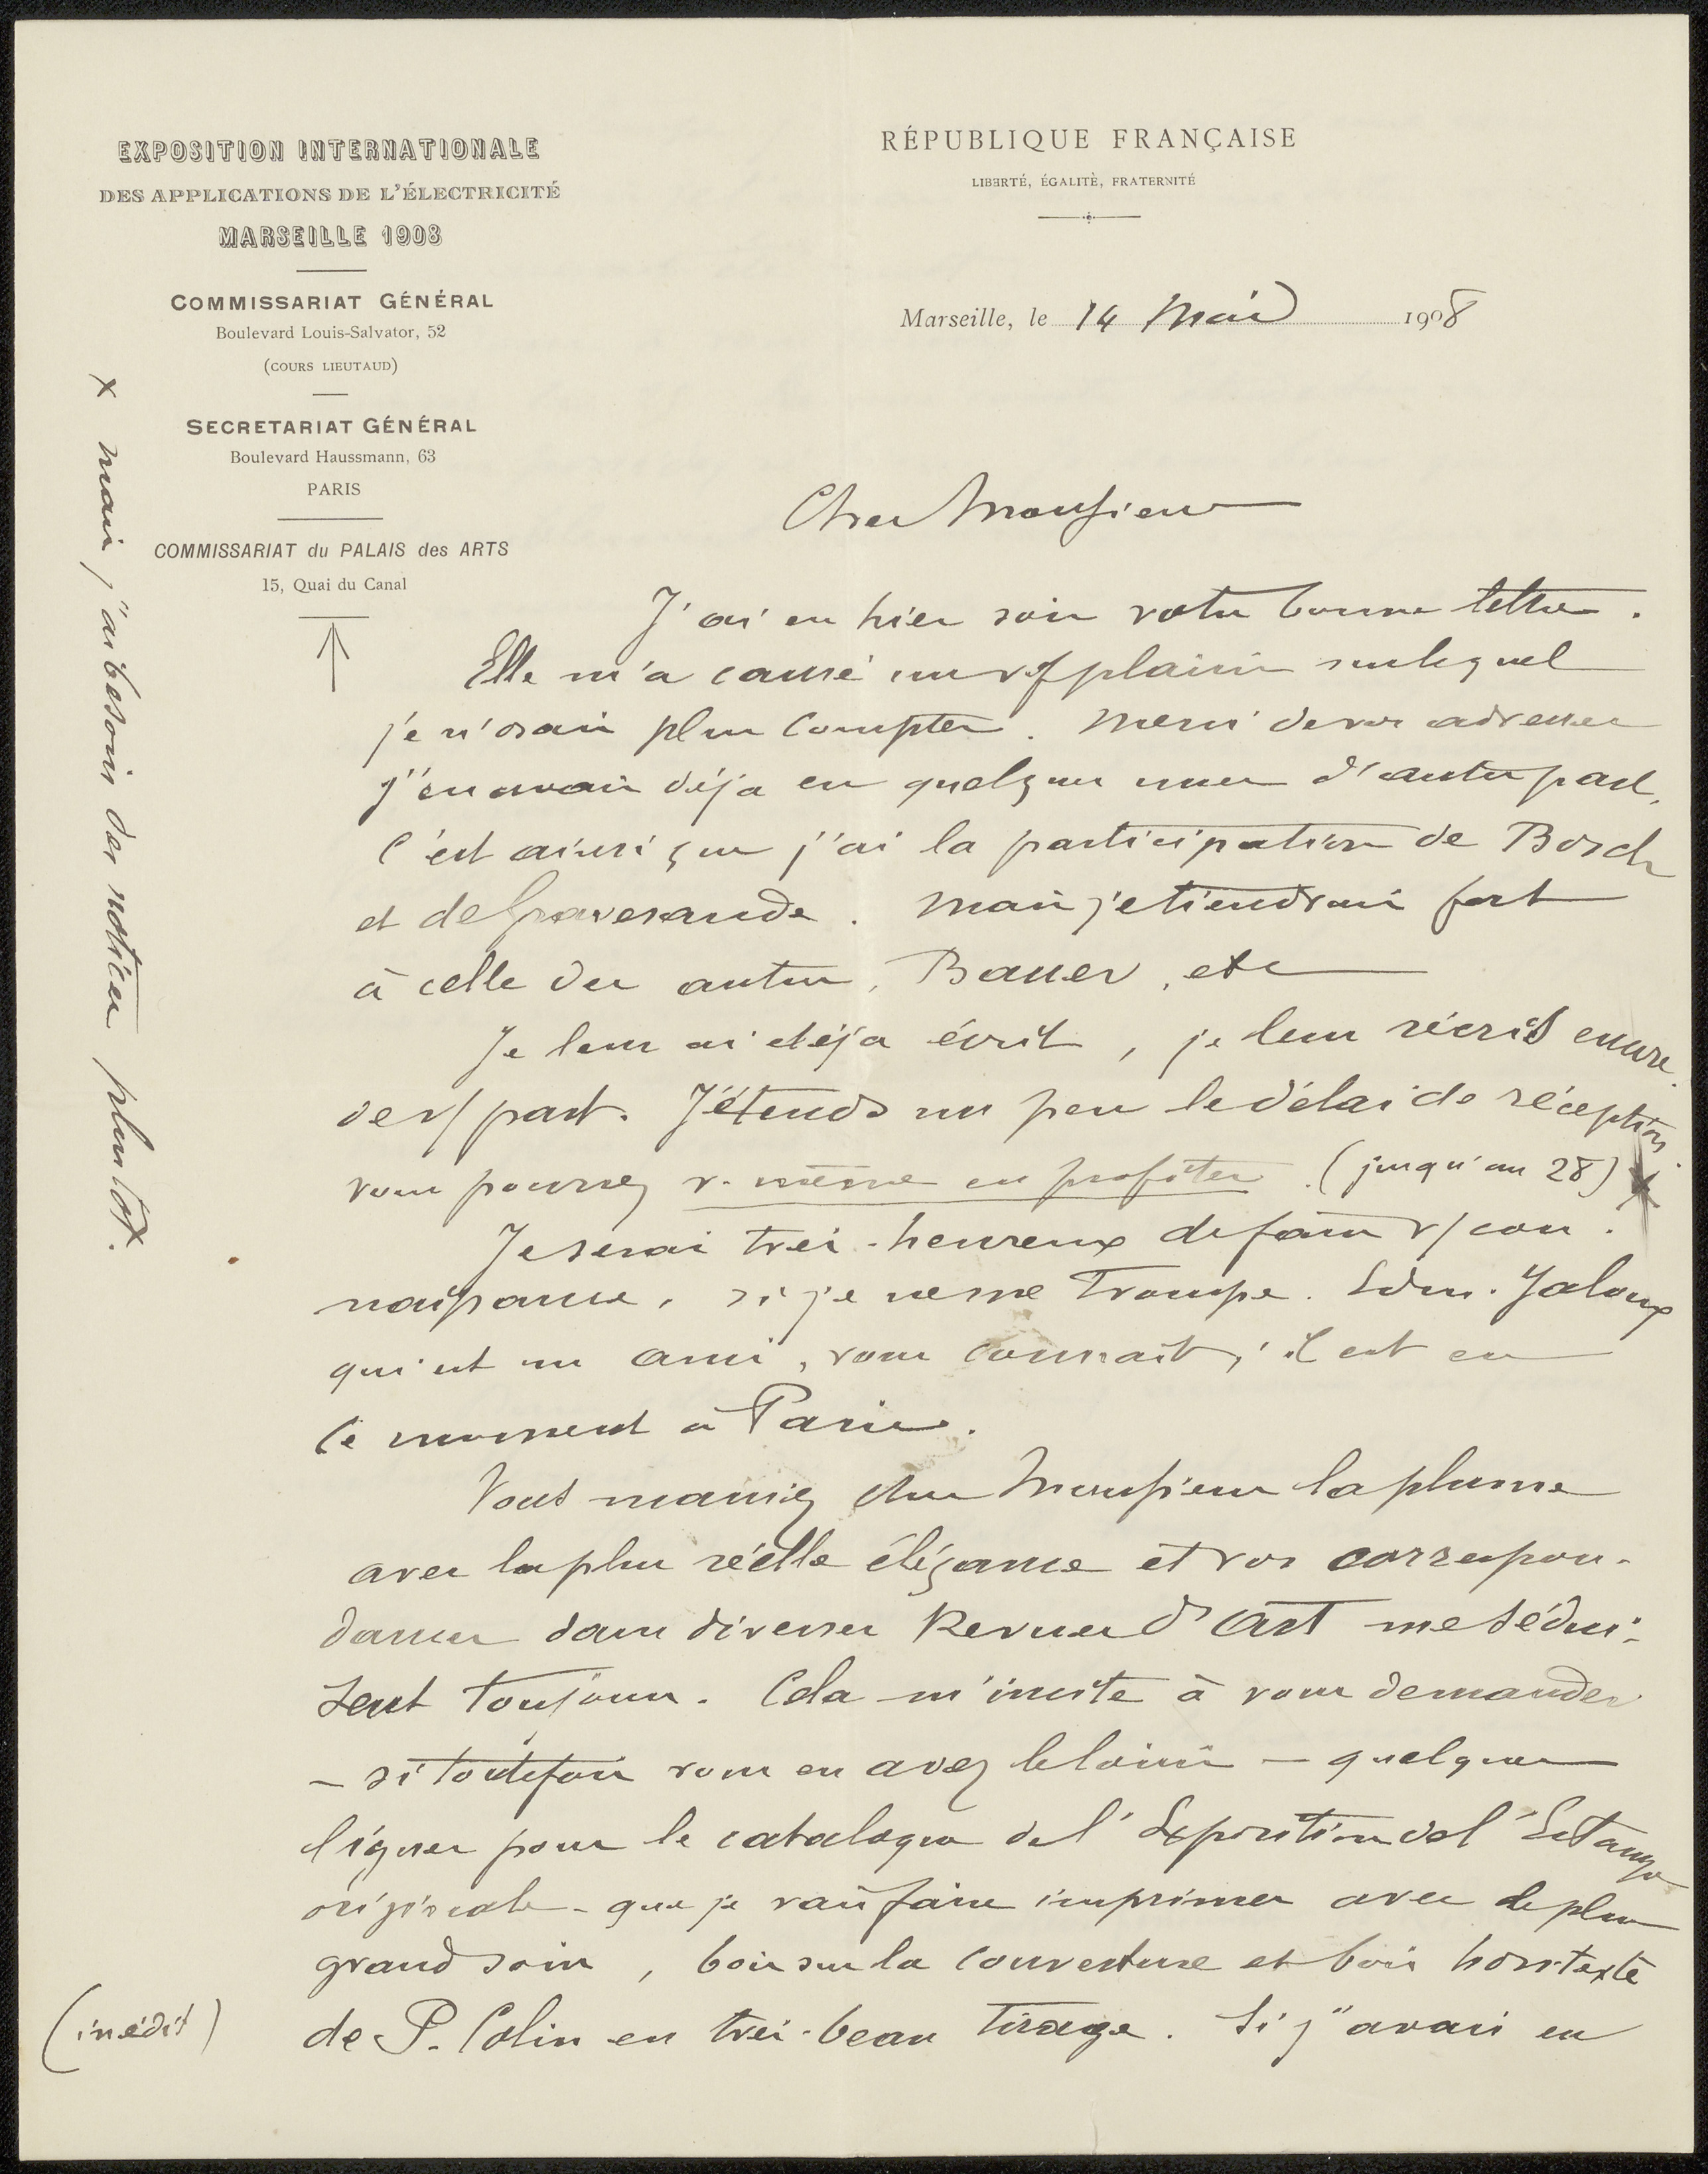 EXPOSITION INTERNATIONALE
DES APPLICATIONS DE L'ÉLECTRICITÉ
MARSEILLE 1908
COMMISSARIAT GÉNÉRAL
Boulevard Louis-Salvator, 52
(COURS LIEUTAUD)
SECRETARIAT GÉNÉRAL
Boulevard Haussmann, 63
PARIS
COMMISSARIAT du PALAIS des ARTS
15, Quai du Canal
RÉPUBLIQUE FRANÇAISE
LIBERTÉ, ÉGALITÈ, FRATERNITÉ
Marseille, le 14 Mai 1908
Cher Monsieur
J'ai eu hier soir votre bonne lettre.
Elle m'a causé un vif plaisir sur lequel
je n'osais plus compter. Merci de vos adresses
j'en avais déja eu quelques unes d'autre part,
c'est ainsi que j'ai la participation de Bosch
et de Gravesande. Mais je tiendrais fort
à celle des autres, Bauer, etc
Je leur ai déjà écrit, je leur récris encore
de v/ part. J'étends un peu le délai de réception
vous pourrez v. même en profiter. (jusqu'au 28) x
Je serai très-heureux de faire v/ con-
naissance, si je ne me trompe. Edm. Jaloux
qui est un ami, vous connait, il est en
ce moment à Paris.
Vous maniez cher Monsieur la plume
avec la plus réelle élégance et vos correspon-
dances dans diverses Revues d'Art me sédui-
sent toujours. Cela m'incite à vous demander
- si toutefois vous en avez le loisir - quelques
lignes pour le catalogue de l'Exposition de l'Estampe
originale - que je vais faire imprimer avec le plus
grand soin, bois sur la couverture et bois hors texte
(inédit) de P. Colin en très-beau tirage. Si j'avais eu
x mais j'ai besoin des notices plus tôt.